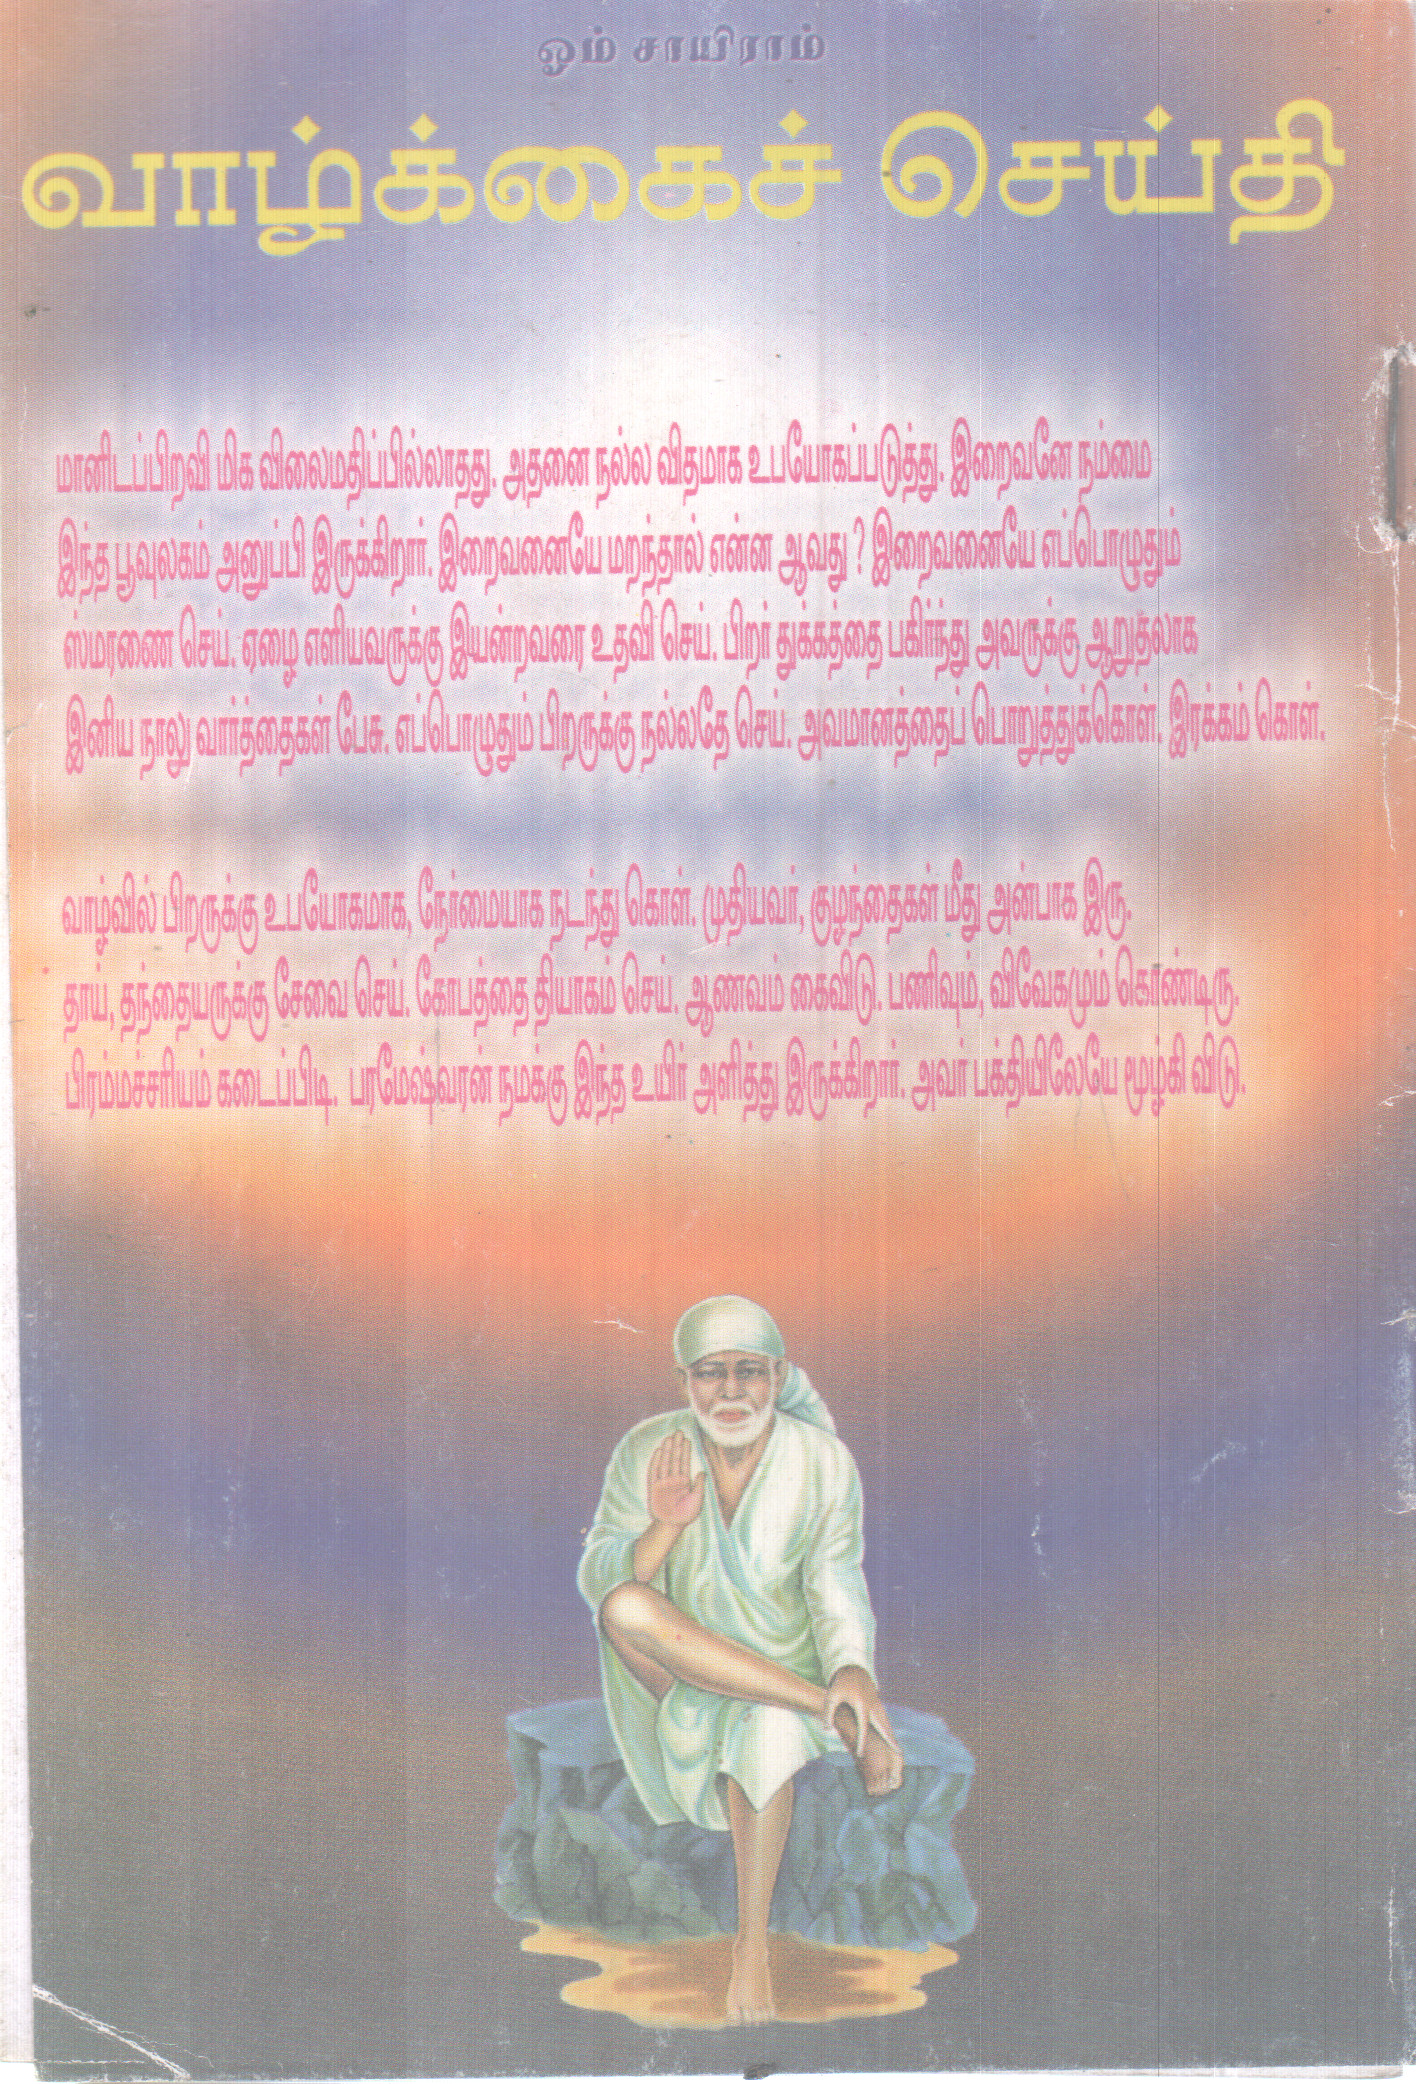 ஓம் சாயிராம்
வாழ்க்கைச் செய்தி
மானிடப்பிறவி மிக விலைமதிப்பில்லாதது. அதனை நல்ல விதமாக உபயோகப்படுத்து. இறைவனே நம்மை
இந்த பூவுலகம் அனுப்பி இருக்கிறார். இறைவனையே மறந்தால் என்ன ஆவது ? இறைவனையே எப்பொழுதும்
ஸ்மரணை செய். ஏழை எளியவருக்கு இயன்றவரை உதவி செய். பிறர் துக்கத்தை பகிர்ந்து அவருக்கு ஆறுதலாக
இனிய நாலு வார்த்தைகள் பேசு. எப்பொழுதும் பிறருக்கு நல்லதே செய். அவமானத்தைப் பொறுத்துக்கொள். இரக்கம் கொள்.
வாழ்வில் பிறருக்கு உபயோகமாக, நேர்மையாக நடந்து கொள். முதியவர், குழந்தைகள் மீது அன்பாக இரு.
தாய், தந்தையருக்கு சேவை செய். கோபத்தை தியாகம் செய். ஆணவம் கைவிடு. பணிவும், விவேகமும் கொண்டிரு.
பிரம்மச்சரியம் கடைப்பிடி. பரமேஷ்வரன் நமக்கு இந்த உயிர் அளித்து இருக்கிறார். அவர் பக்தியிலேயே மூழ்கி விடு.